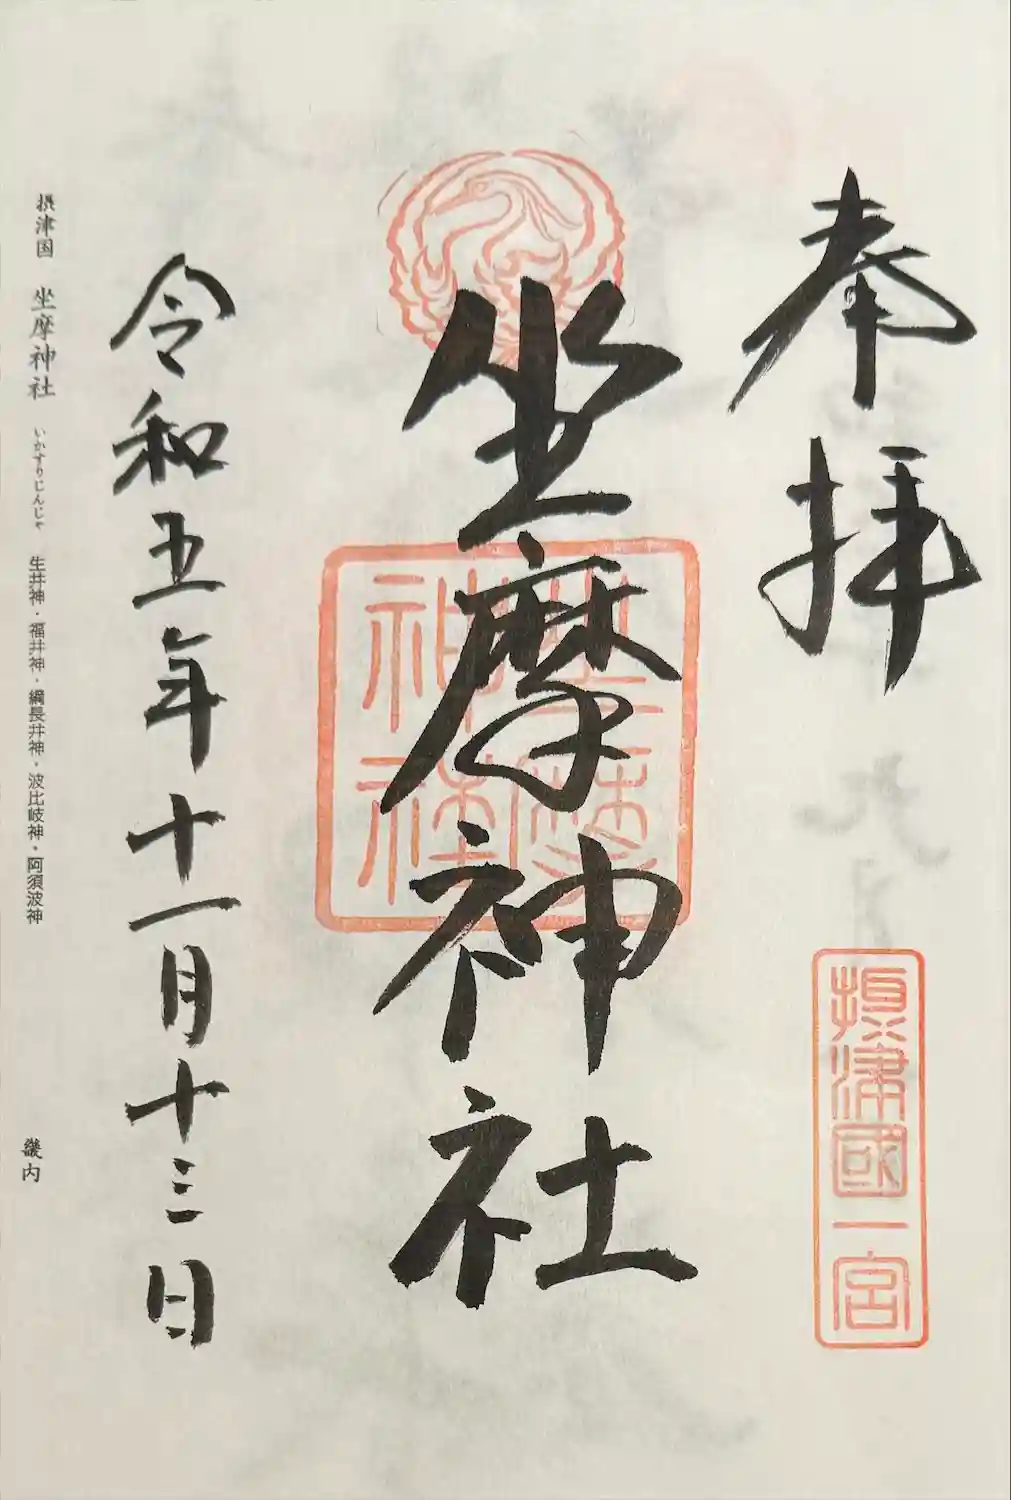 奉拝
摂津國一宮
坐摩神社
坐摩神社
令和五年十一月十三日
摂津国 坐摩神社 いかすりじんじゃ 生井神・福井神・綱長井神・波比岐神・阿須波神
畿内